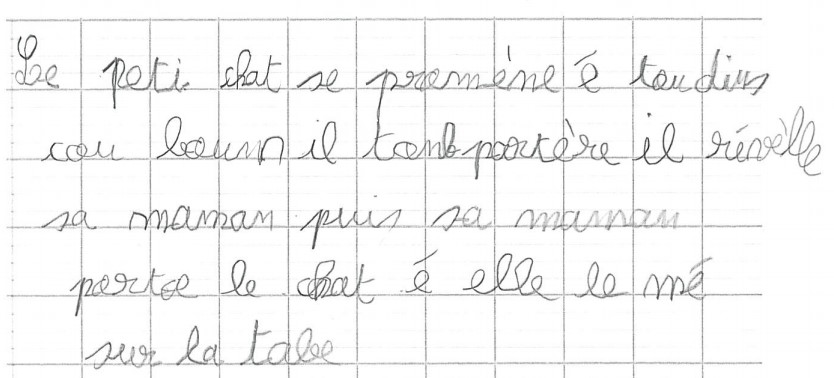 Le peti chat se promène é tou dins
cou boum il tomb portère il révèlle
sa maman puis sa maman
porte le chat é elle le mé
sur la tabe